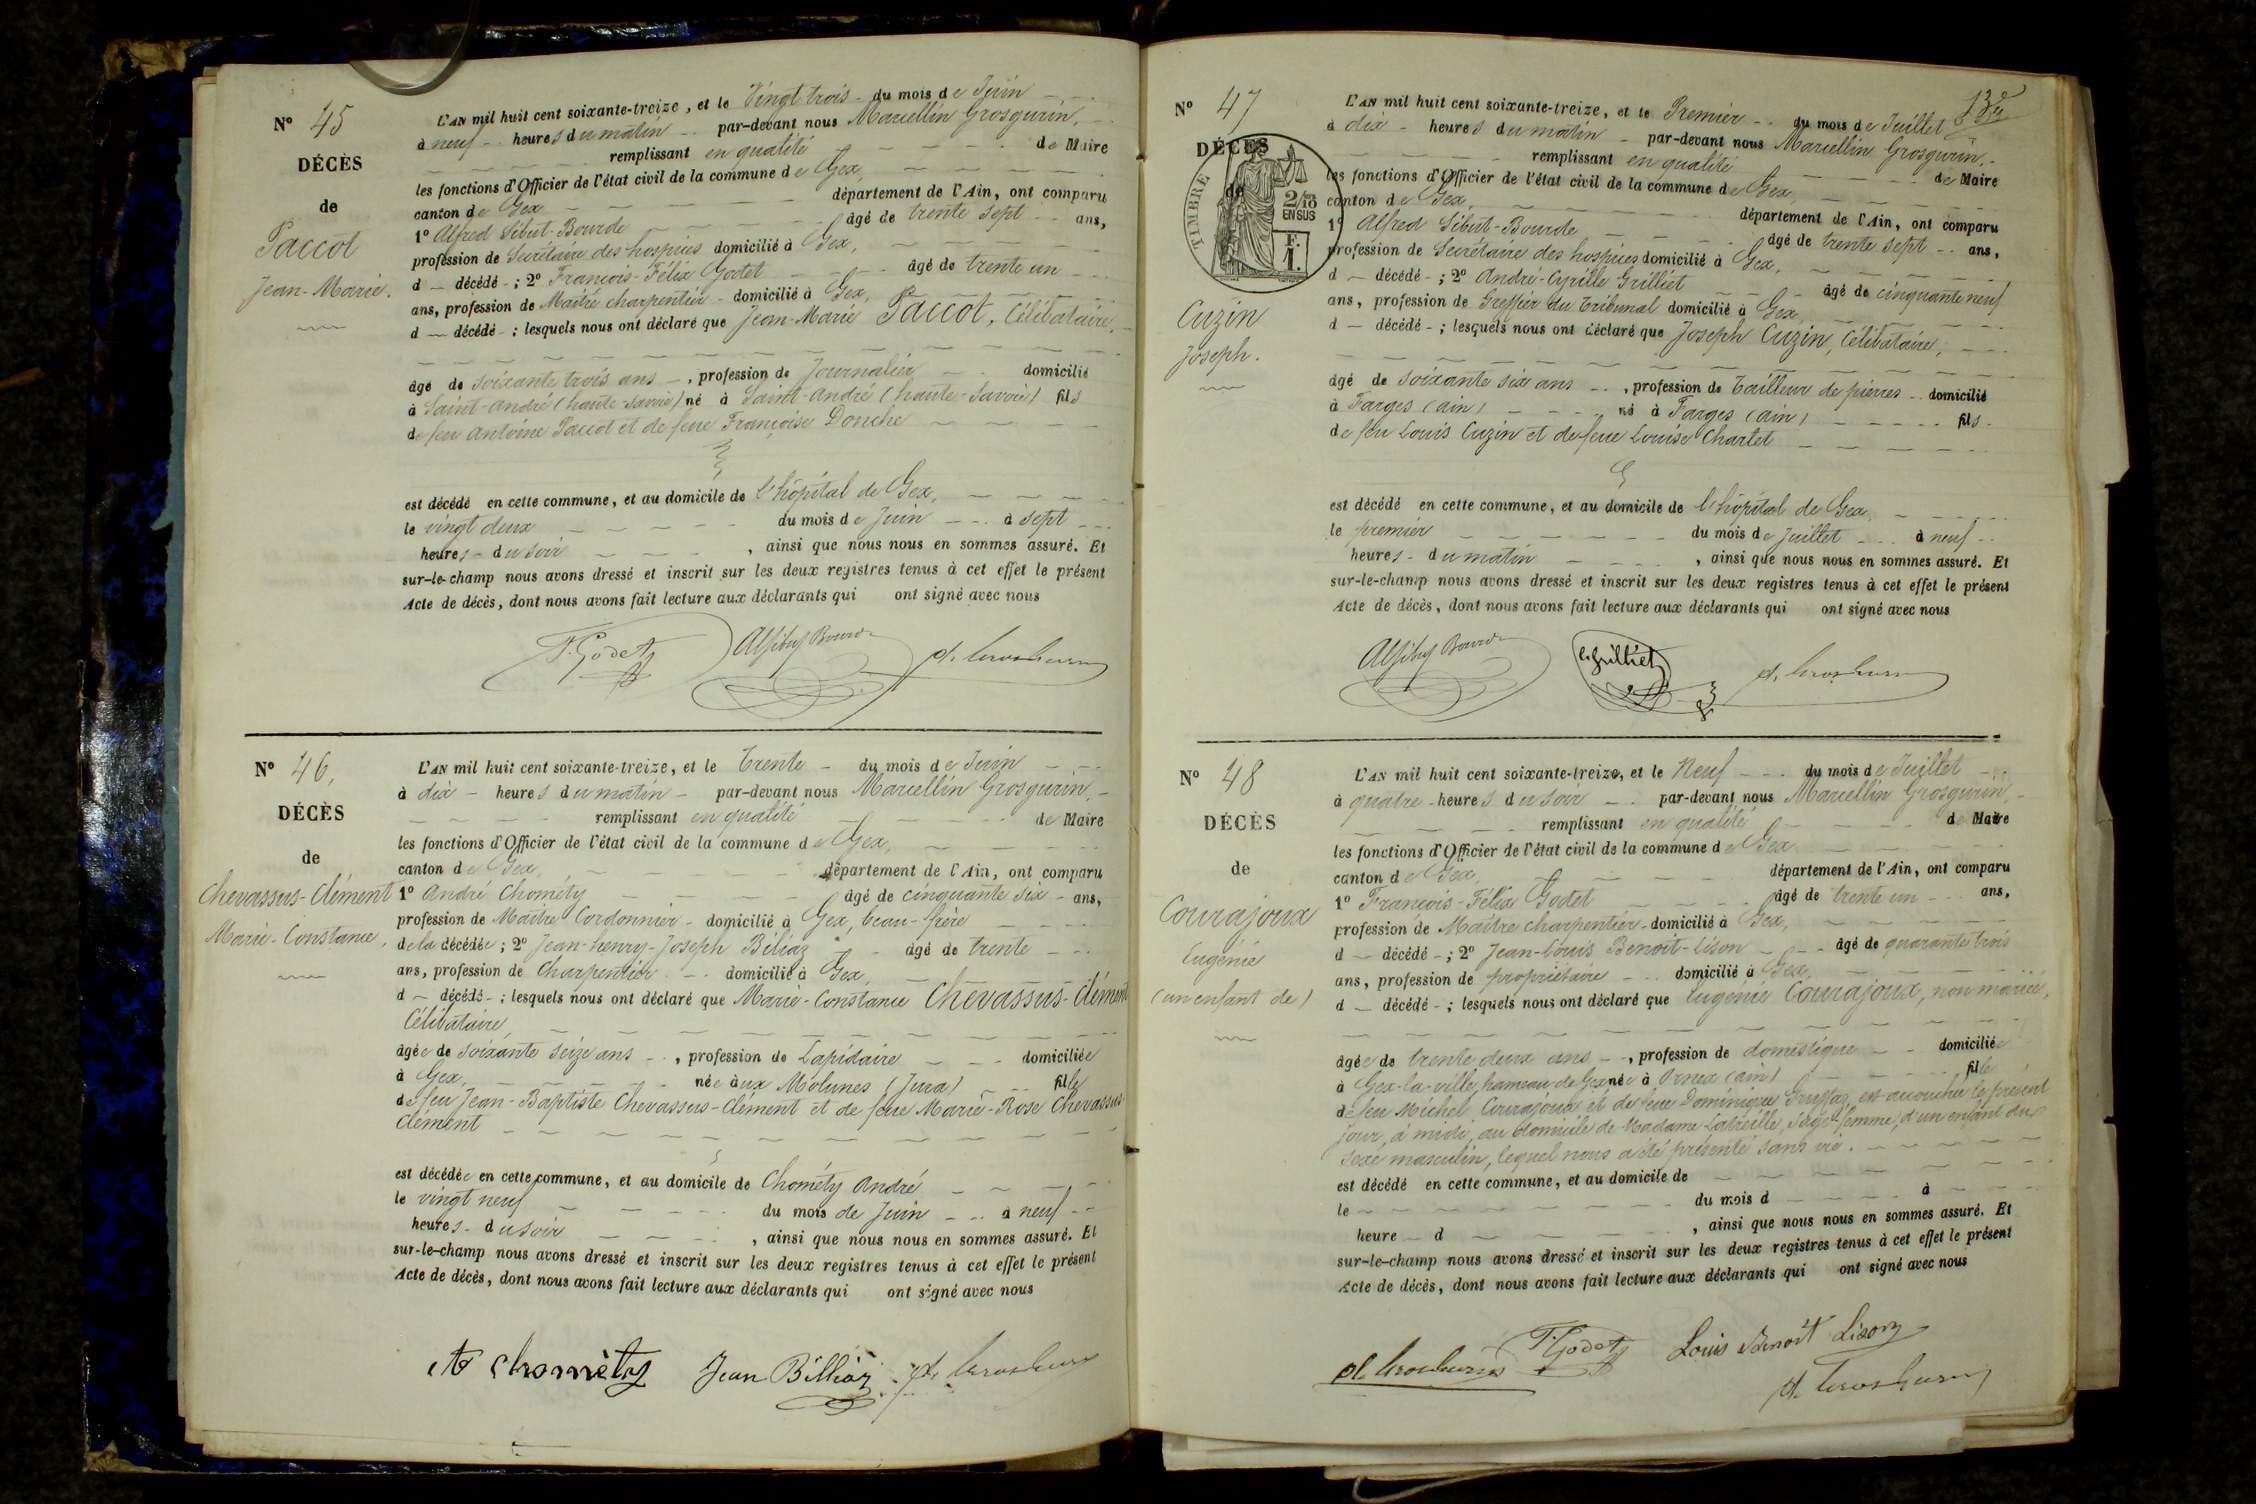 N° 45
DÉCÈS
de
Paccot
Jean-Marie.
L'AN mil huit cent soixante-treize, et le Vingt trois - du mois de Juin
à neuf - heures du matin - par-devant nous Marcellin Grosgurin,
remplissant en qualité de Maire
les fonctions d'Officier de l'état civil de la commune de Gex,
canton de Gex département de l'Ain, ont comparu
1° Alfred Sibut-Bourde âgé de trente sept ans,
profession de Secrétaire des hospices domicilié à Gex,
d - décédé - ; 2° François-Félix Godet âgé de trente un
ans, profession de Maître charpentier - domicilié à Gex,
d - décédé - ; lesquels nous ont déclaré que Jean-Marie Paccot, Célibataire,
âgé de soixante trois ans -, profession de Journalier domicilié
à Saint-André (haute-Savoie) né à Saint-André (haute-Savoie) fils
de feu Antoine Paccot et de feue Françoise Donche
est décédé en cette commune, et au domicile de l'hôpital de Gex,
le vingt deux du mois de Juin à sept
heures - du soir, ainsi que nous nous en sommes assuré. Et
sur-le-champ nous avons dressé et inscrit sur les deux registres tenus à cet effet le présent
Acte de décès, dont nous avons fait lecture aux déclarants qui ont signé avec nous
F. Godet Alf Sibut Bourde M. Grosgurin
N° 46,
DÉCÈS
de
Chevassus-Clément
Marie-Constance,
L'AN mil huit cent soixante-treize, et le Trente - du mois de Juin
à dix - heures du matin - par-devant nous Marcellin Grosgurin, -
remplissant en qualité de Maire
les fonctions d'Officier de l'état civil de la commune de Gex,
canton de Gex, département de l'Ain, ont comparu
1° André Chométy âgé de cinquante six - ans,
profession de Maître Cordonnier - domicilié à Gex, beau-frère
de la décédée ; 2° Jean-henry-Joseph Béliaz âgé de trente
ans, profession de Charpentier domicilié à Gex,
d - décédé - ; lesquels nous ont déclaré que Marie-Constance Chevassus-Clément
Célibataire,
âgée de soixante seize ans -, profession de Lapidaire domiciliée
à Gex, née aux Molunes (Jura) fille
de feu Jean-Baptiste Chevassus-Clément et de feue Marie-Rose Chevassus-
Clément
est décédée en cette commune, et au domicile de Chométy André
le vingt neuf du mois de Juin à neuf
heures - du soir, ainsi que nous nous en sommes assuré. Et
sur-le-champ nous avons dressé et inscrit sur les deux registres tenus à cet effet le présent
Acte de décès, dont nous avons fait lecture aux déclarants qui ont signé avec nous
Chométy Jean Billiaz M. Grosgurin
N° 47
DÉCÈS
de
TIMBRE
2/10
EN SUS
F.
1.
Cuzin
Joseph.
L'AN mil huit cent soixante-treize, et le Premier - du mois de Juillet
à dix - heures du matin - par-devant nous Marcellin Grosgurin, -
remplissant en qualité de Maire
les fonctions d'Officier de l'état civil de la commune de Gex,
canton de Gex, département de l'Ain, ont comparu
1° Alfred Sibut-Bourde âgé de trente sept ans,
profession de Secrétaire des hospices domicilié à Gex,
d - décédé - ; 2° André-Cyrille Grilliet âgé de cinquante neuf
ans, profession de Greffier du Tribunal domicilié à Gex
d - décédé - ; lesquels nous ont déclaré que Joseph Cuzin, Célibataire,
âgé de soixante six ans, profession de Tailleur de pierres domicilié
à Farges (ain) né à Farges (ain) fils
de feu Louis Cuzin et de feue Louise Chartet
est décédé en cette commune, et au domicile de l'hôpital de Gex,
le premier du mois de Juillet à neuf
heures - du matin, ainsi que nous nous en sommes assuré. Et
sur-le-champ nous avons dressé et inscrit sur les deux registres tenus à cet effet le présent
Acte de décès, dont nous avons fait lecture aux déclarants qui ont signé avec nous
Alf Sibut Bourde C. Grilliet M. Grosgurin
N° 48
DÉCÈS
de
Courajoux
Eugénie
(un enfant de)
L'AN mil huit cent soixante-treize, et le Neuf du mois de Juillet
à quatre - heures du soir par-devant nous Marcellin Grosgurin, -
remplissant en qualité de Maire
les fonctions d'Officier de l'état civil de la commune de Gex
canton de Gex, département de l'Ain, ont comparu
1° François-Félix Godet âgé de trente un ans,
profession de Maître charpentier - domicilié à Gex,
d - décédé - ; 2° Jean-Louis Benoît-Lison âgé de quarante trois
ans, profession de propriétaire domicilié à Gex,
d - décédé - ; lesquels nous ont déclaré que Eugénie Courajoux, non mariée,
âgée de trente deux ans -, profession de domestique domiciliée
à Gex-la-ville, hameau de Gex née à Ornex (ain) fille
de feu Michel Courajoux et de feue Dominique est accouchée le présent
jour, à midi, au domicile de Madame Latreille, sage-femme, d'un enfant du
sexe masculin, lequel nous a été présenté sans vie.
est décédé en cette commune, et au domicile de
le du mois d à
heure d, ainsi que nous nous en sommes assuré. Et
sur-le-champ nous avons dressé et inscrit sur les deux registres tenus à cet effet le présent
Acte de décès, dont nous avons fait lecture aux déclarants qui ont signé avec nous
M. Grosgurin F. Godet Louis Benoît Lison
M. Grosgurin